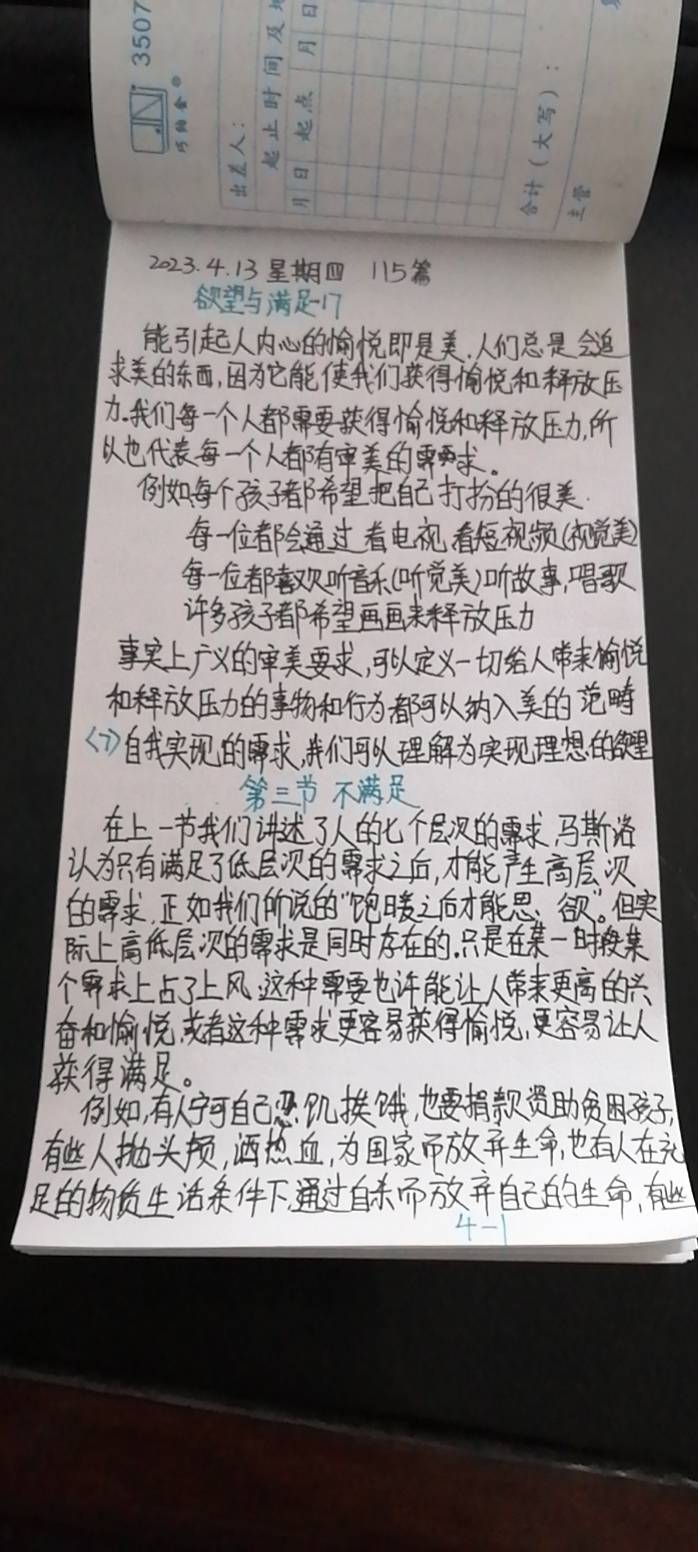 3507
巧的舍®
出差人：
起止时间及地
月 日 起点 月 日
合计（大写）：
主管
2023.4.13 星期四 115篇
欲望与满足-17
能引起人内心的愉悦即是美.人们总是会追
求美的东西,因为它能使我们获得愉悦和释放压
力.我们每一个人都需要获得愉悦和释放压力,所
以也代表每一个人都有审美的需求。
例如,每个孩子都希望把自己打扮的很美.
每一位都会通过看电视,看短视频(视觉美)
每一位都喜欢听音乐(听觉美)听故事,唱歌
许多孩子都希望画画来释放压力
事实上广义的审美要求,可以定义一切给人带来愉悦
和释放压力的事物和行为都可以纳入美的范畴
<7>自我实现的需求,我们可以理解为实现理想的欲望
第三节 不满足
在上一节我们讲述了人的七个层次的需求,马斯洛
认为只有满足了低层次的需求之后,才能产生高层次
的需求.正如我们所说的"饱暖之后才能思、欲"。但实
际上高低层次的需求是同时存在的.只是在某一时段某
个需求上占了上风,这种需要也许能让人带来更高的兴
奋和愉悦,或者这种需求更容易获得愉悦,更容易让人
获得满足。
例如,有人宁可自己忍饥挨饿,也要捐款资助贫困孩子,
有些人抛头颅,洒热血,为国家而放弃生命,也有人在充
足的物质生活条件下,通过自杀而放弃自己的生命,有些
4-1